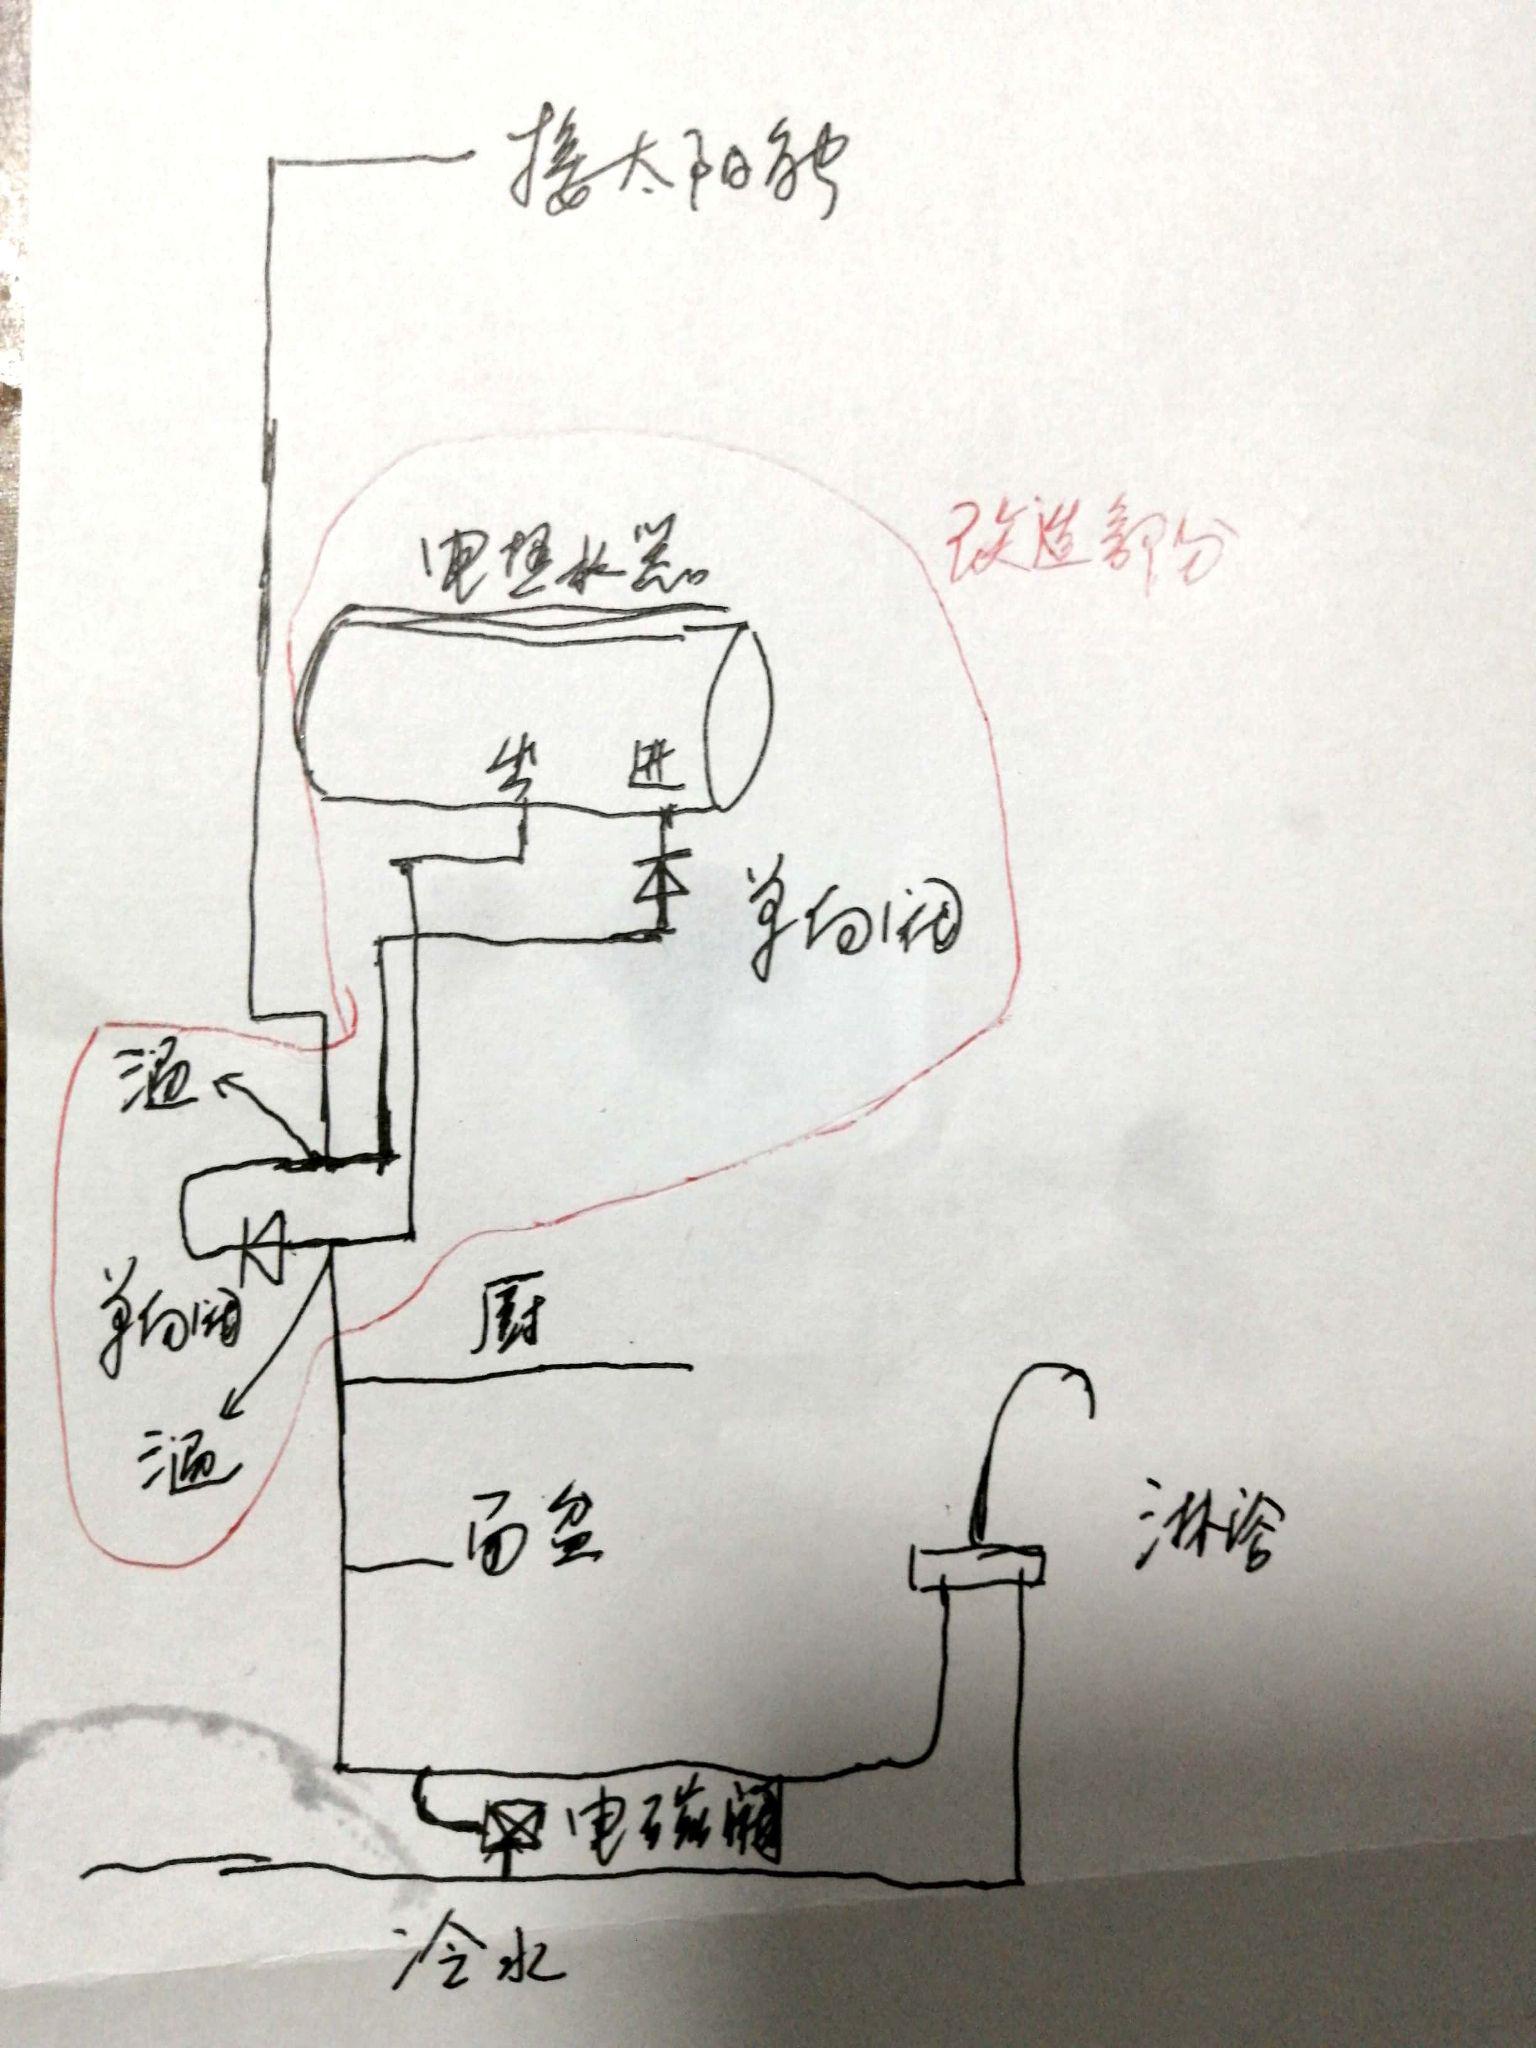 接太阳能
改造部分
电热水器
出 进
单向阀
温
单向阀
厨
温
面盆
淋浴
电磁阀
冷水